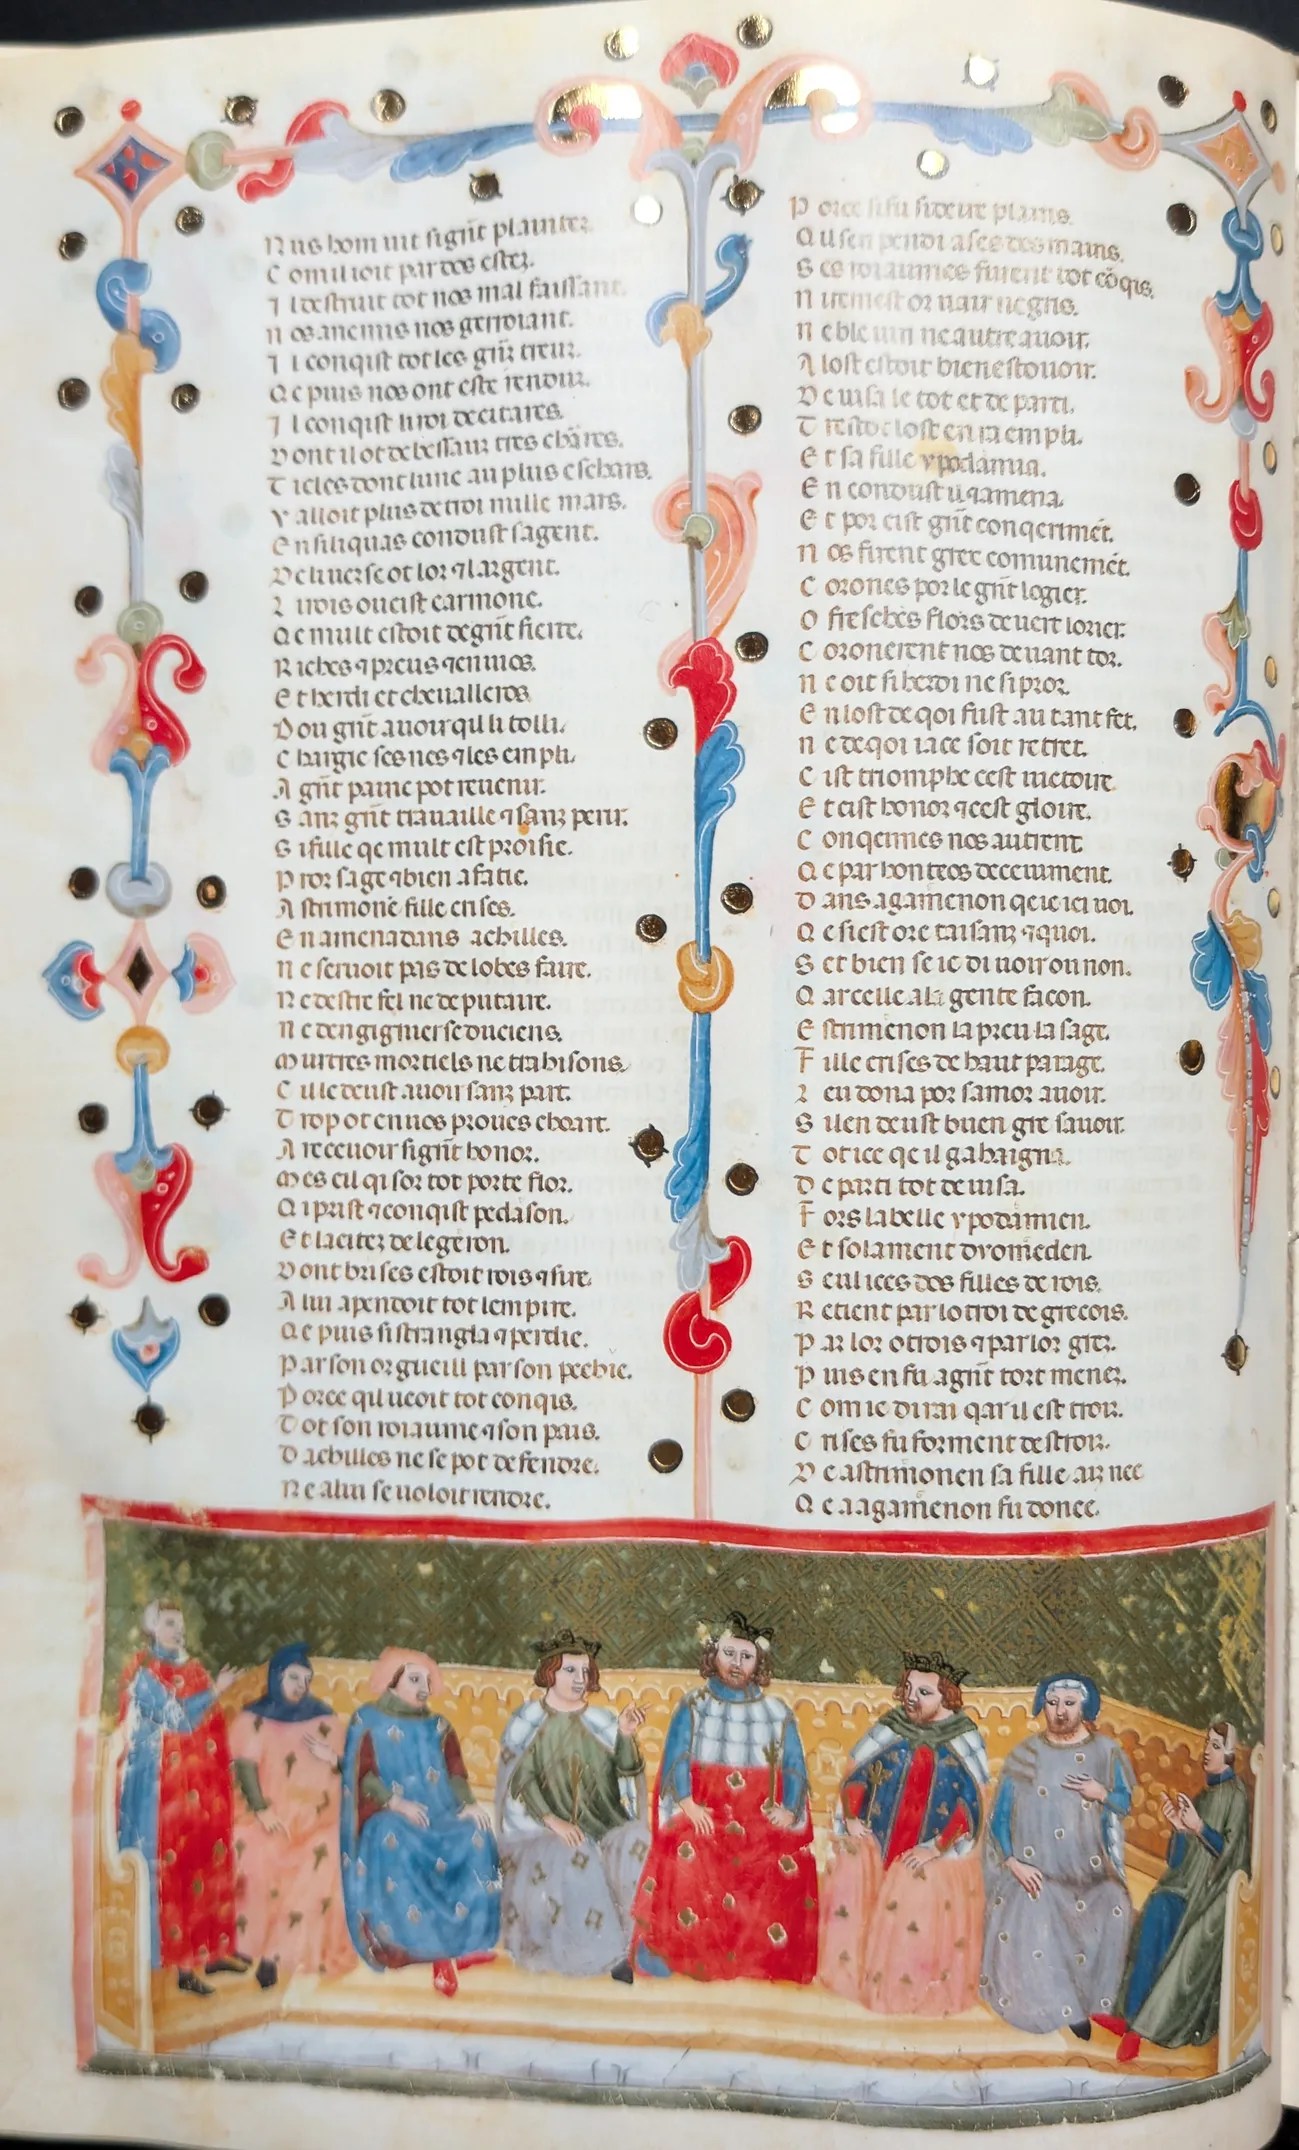 N us hom uit si gñt plaintez.
C om il ioit par dos estez.
I l destruit tot nos mal faissanz.
N os anemis nos gerroianz.
I l conqist tot les gñz treuz.
Q e puis nos ont este renduz.
I l conqist
D ont il ot de bessanz tres chãres.
T ieles dont lune au plus eschars.
V alloit plus de troi mille mars.
E n siliquas condust sagent.
D e liuerse ot lor ⁊ largent.
L i rois ou cist carmone.
Q e mult estoit de gñt fierte.
R iches ⁊ preus ⁊
E t herdi et cheualleros
D ou gñt auoir qu li tolli.
C hargie ses nes ⁊ les empli.
A gñt paine pot reuenir.
S anz gñt trauaille ⁊ sanz perir.
S i fille qe mult est proisie.
P roz sage ⁊ bien afatie.
A strimone fille crises.
E n amena dans achilles.
N e seruoit pas de lobes faire.
N e destre fel ne de putaire.
N e dengignier se
M urtres mortiels ne trahisons.
C il le deust auoir sanz part.
T rop ot en nos proues
A receuoir si gñt honor.
M es cil qi sor tot porte flor.
Q i prist ⁊ conqist pedason.
E t la citez de legeron.
D ont brises estoit rois ⁊ sire.
A lui apendoit tot lempire.
Q e puis si strangla ⁊ perdie.
P ar son orgueill par son pechie.
P orce qil ueoit tot conqis.
T ot son roiaume ⁊ son pais.
D achilles ne se pot defendre.
N e a lui se uoloit rendre.
P orce si fu si deut plains.
Q u sen pendi a ses dos mains.
S es roiaumes furent tot cõqis.
N i remest or uair ne gris.
N e ble uin ne autre auoir.
A lost estoit bien estouoir.
D euisa le tot et departi.
T restoz lost en raempli.
E t sa fille ypodamia.
E n condust il ⁊ amena.
E t por cist gñt conqerimẽt.
N os firent gree comunemẽt.
C orones por le gñt logier.
O fresches flors de uert lorier.
C oronerent nos deuant toz.
N e oit si herdi ne si proz.
E n lost de qoi fust autant fet.
N e de qoi iace soit retret.
C ist triomphe cest uictoire.
E t cist honor ⁊ cest gloire.
C onqeimes nos autrent
Q e par hontos deceuiment.
D ans agamenon qe ie ici uoi.
Q e si est ore taisanz ⁊ quoi.
S et bien se ie di uoir ou non.
Q ar celle a la gente facon.
E strimenon la preu la sage.
F ille crises de haut parage.
L eu dona por samor auoir.
S i len deust buen gre sauoir.
T ot ice qe il gahaigna.
D eparti tot deuisa.
F ors la belle ypodamien.
E t solament dyomeden.
S eul ices dos filles de rois.
R etient par lotroi de grecois.
P ar lor otrois ⁊ par lor grez.
P uis en fu a gñt tort menez.
C om ie dirai qar il est troiz.
C rises fu forment destroiz.
D e astrimonen sa fille ainz nee
Q e a agamenon fu donee.